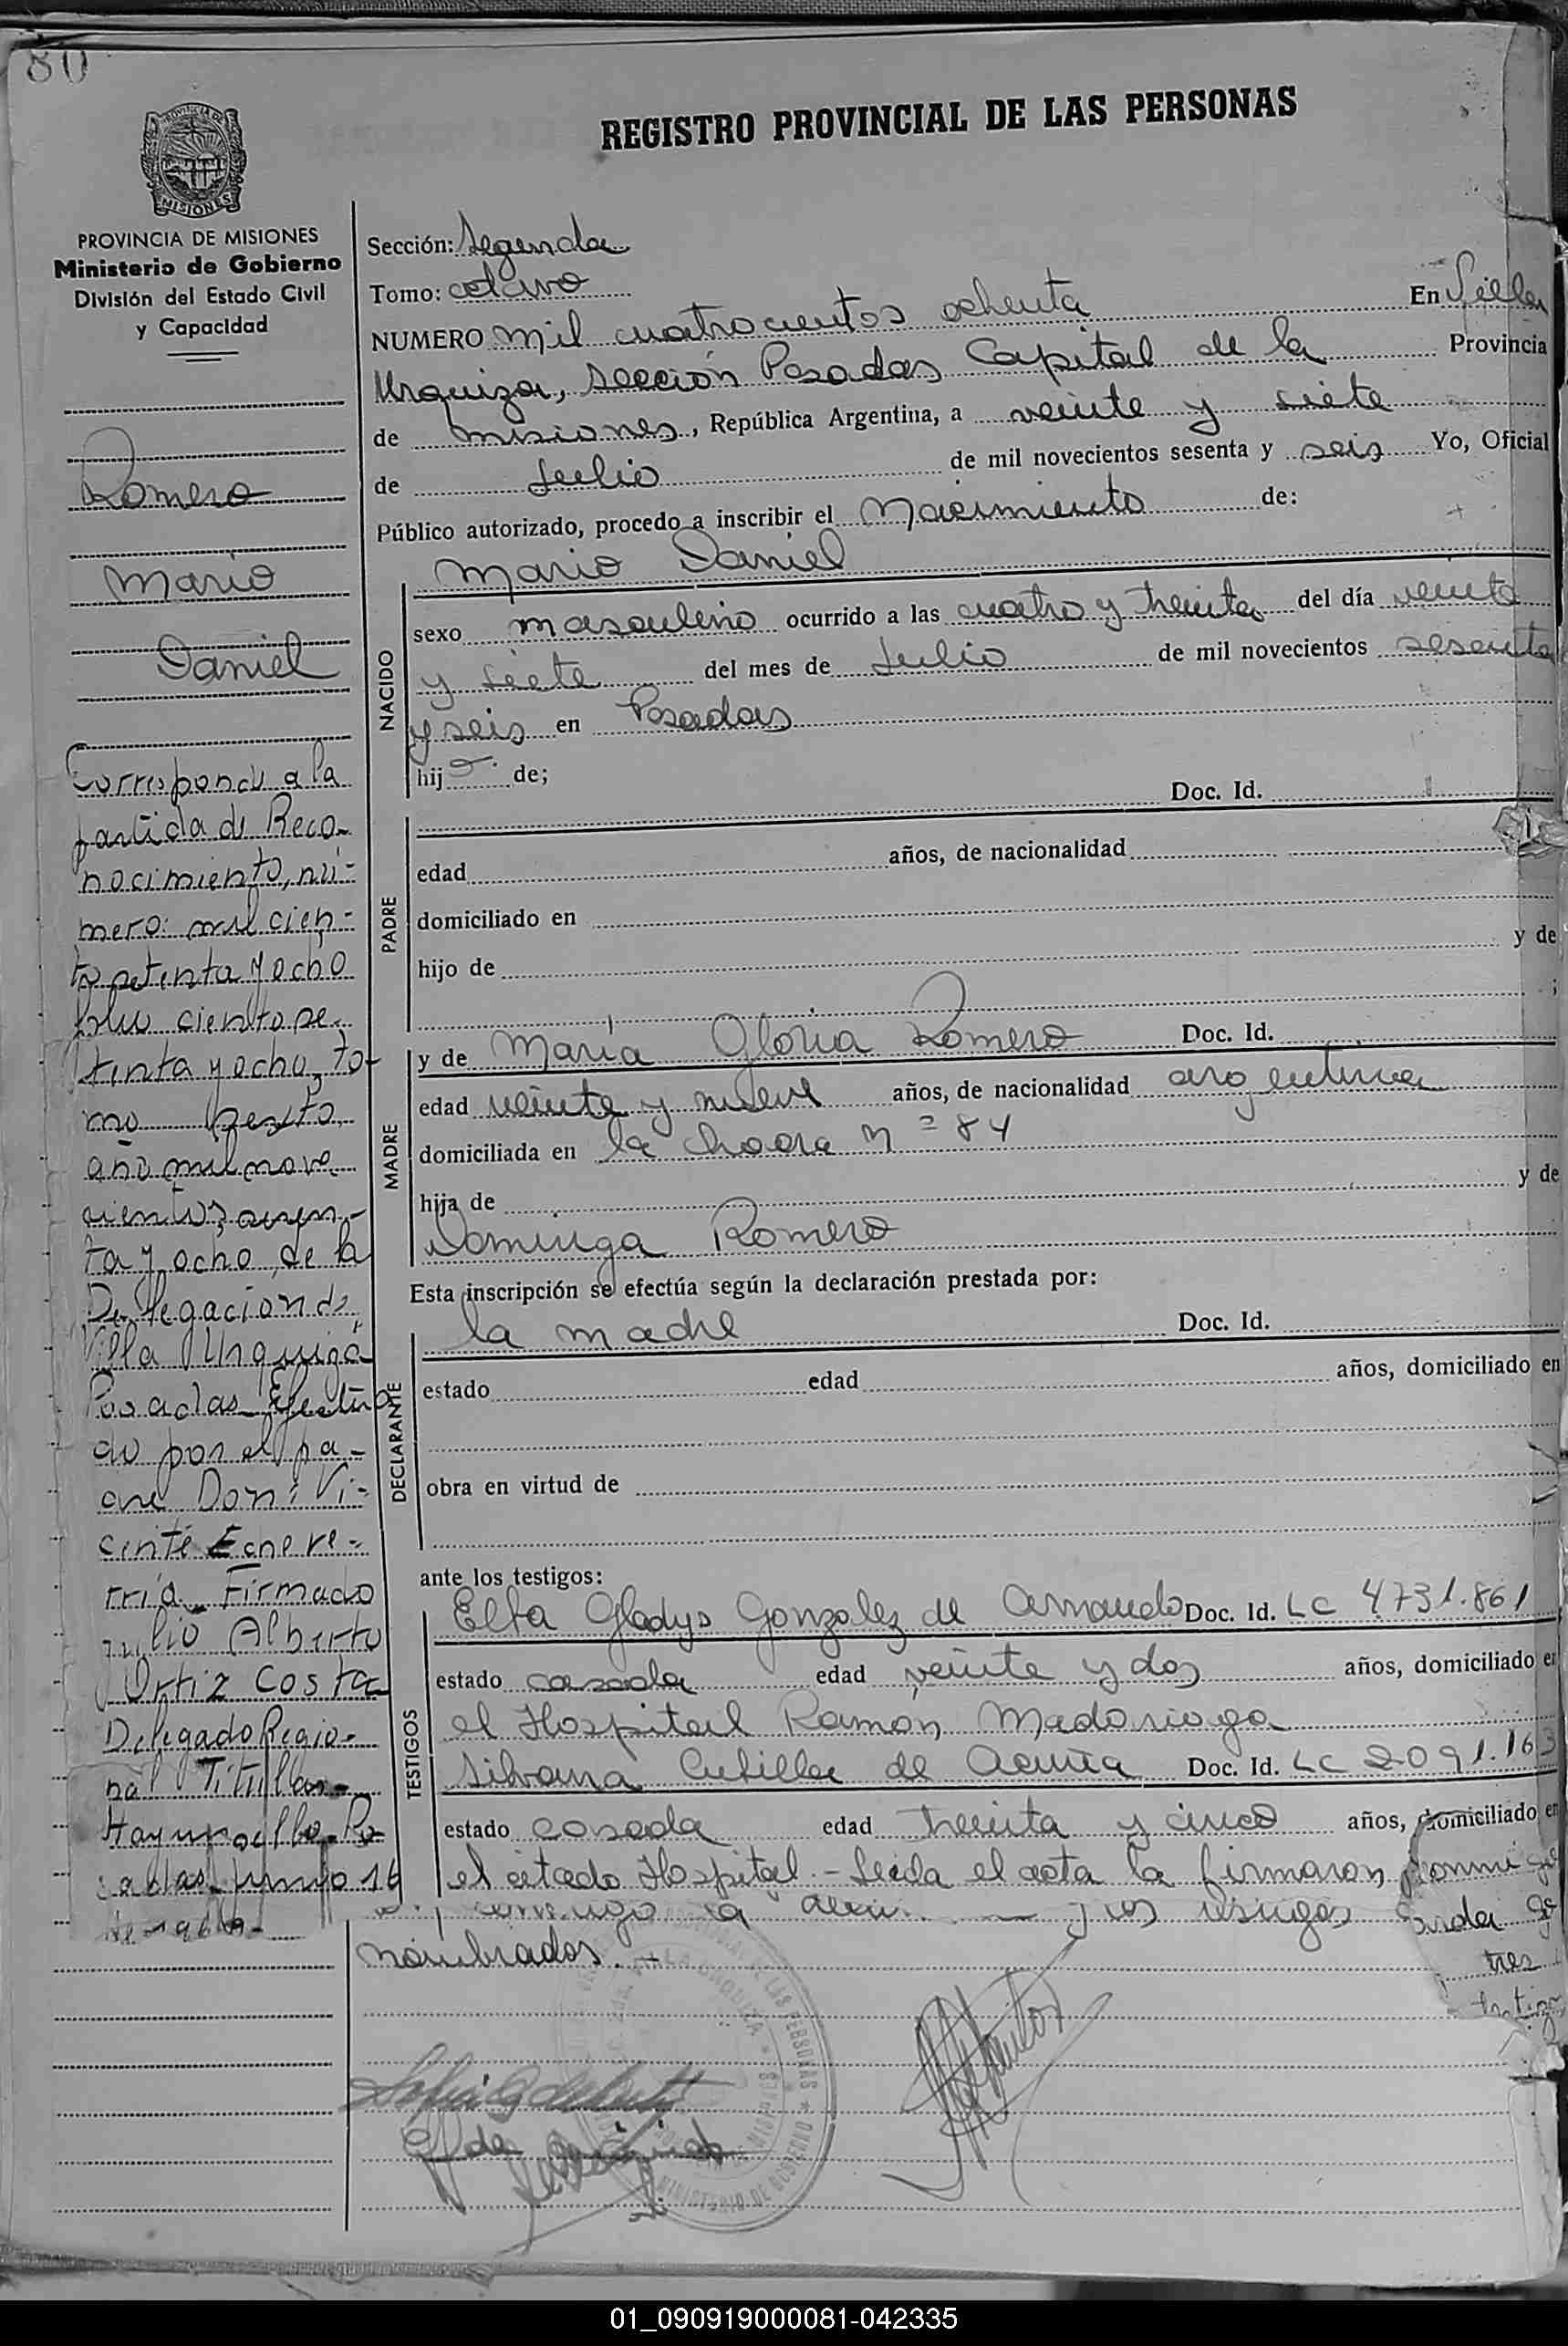 80
REGISTRO PROVINCIAL DE LAS PERSONAS
PROVINCIA DE MISIONES
Ministerio de Gobierno
División del Estado Civil
y Capacidad
Romero
Mario
Daniel
Corresponde a la
partida de Reco-
nocimiento, nú-
mero: mil cien-
to setenta y ocho
folio ciento se
tenta y ocho, to-
mo sexto,
año mil nove
cientos sesen-
ta y ocho, de la
Delegacion de
Villa Urquiza
Posadas. Efectua
do por el pa-
dre Don: Vi-
cente Echeve-
rria. Firmado
Julio Alberto
Ortiz Costa
Delegado Regio-
nal Titular.
Hay un sello. Po-
sadas, junio 16
Sección: Segunda
Tomo: octavo
NUMERO mil cuatrocientos ochenta En Villa
Urquiza, sección Posadas Capital de la Provincia
de Misiones, República Argentina, a veinte y siete
de Julio de mil novecientos sesenta y seis Yo, Oficial
Público autorizado, procedo a inscribir el Nacimiento de:
Mario Daniel
NACIDO
sexo masculino ocurrido a las cuatro y treinta del día veinte
y siete del mes de Julio de mil novecientos sesenta
y seis en Posadas
hijo de;
PADRE
Doc. Id.
edad años, de nacionalidad
domiciliado en
hijo de y de
;
MADRE
y de María Gloria Romero Doc. Id.
edad veinte y nueve años, de nacionalidad argentina
domiciliada en la chacra Nº 84
hija de y de
Dominga Romero
Esta inscripción se efectúa según la declaración prestada por:
DECLARANTE
la madre Doc. Id.
estado edad años, domiciliado en
obra en virtud de
ante los testigos:
TESTIGOS
Elba Gladys Gonzalez de Doc. Id. LC 4731.861
estado casada edad veinte y dos años, domiciliado en
el Hospital Ramón Madariaga
Silvana de Acuña Doc. Id. LC 2091.163
estado casada edad treinta y cinco años, domiciliado en
el citado Hospital.- Leida el acta la firmaron
conmigo la testigos
nombrados.-
tres